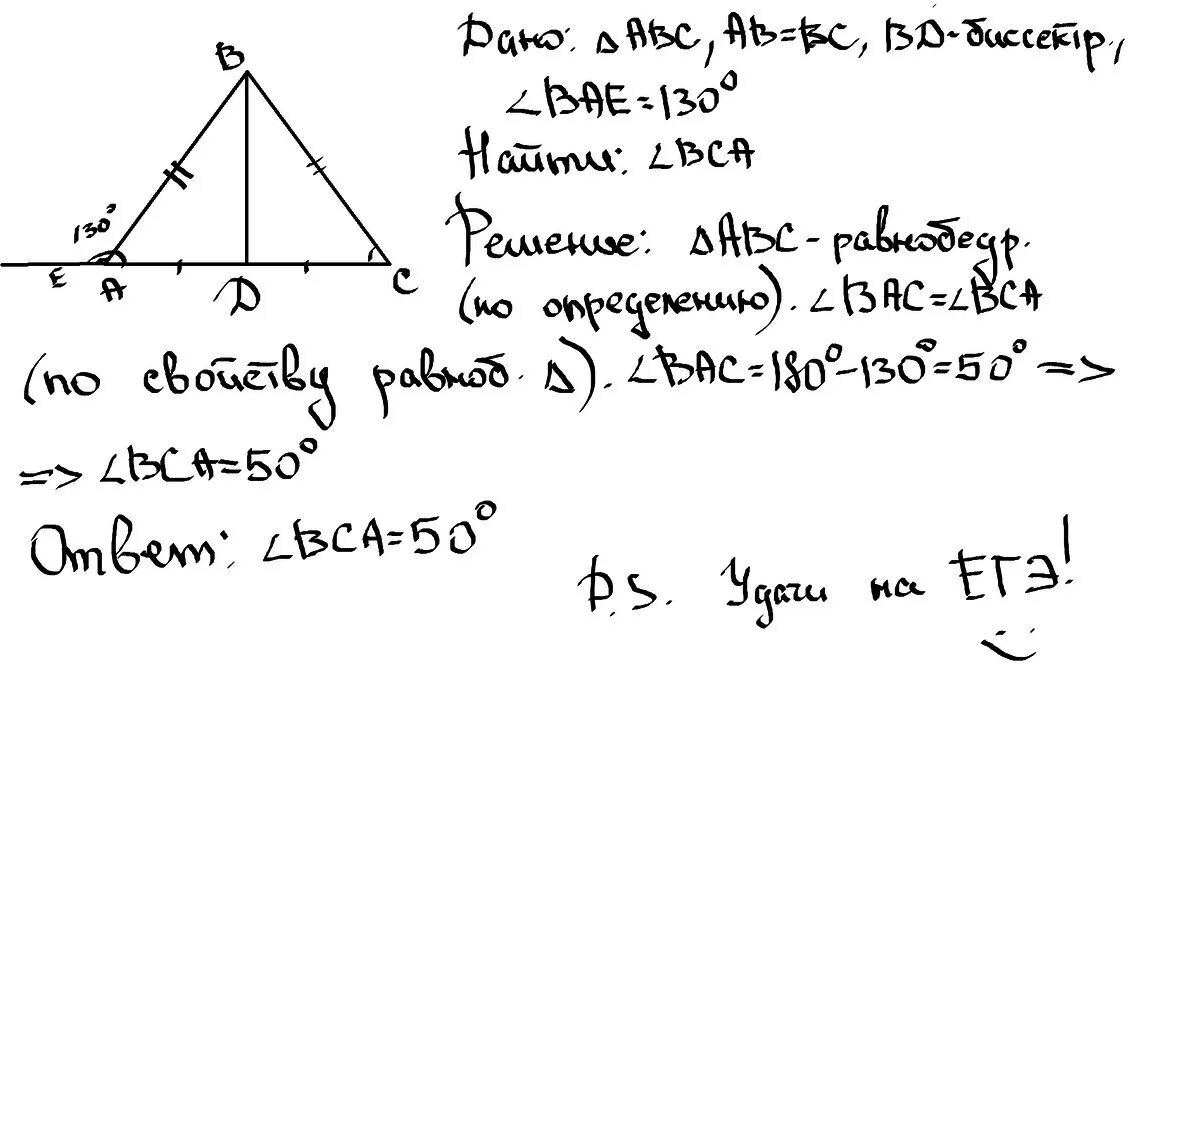 Дано: ΔABC, AB=BC, BD-биссектр.,
∠BAE=130°
Найти: ∠BCA
Решение: ΔABC-равнобедр.
(по определению). ∠BAC=∠BCA
(по свойству равноб. Δ). ∠BAC=180°-130°=50° =>
=> ∠BCA=50°
Ответ: ∠BCA=50°
P.S. Удачи на ЕГЭ!
B
130°
E
A
D
C